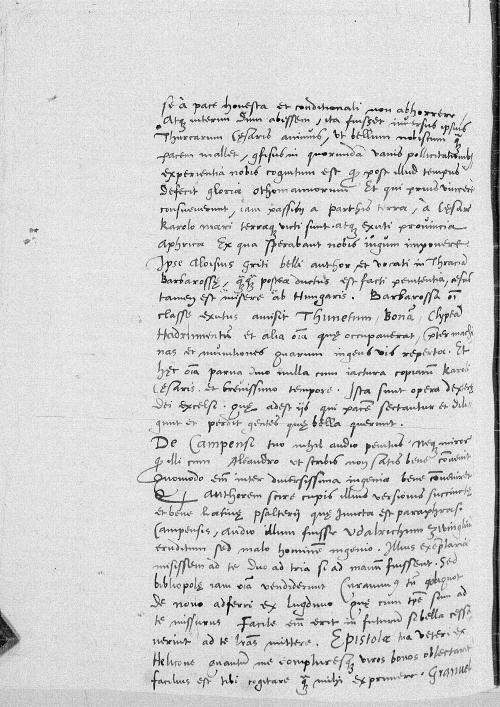 se à pace honesta et conditionali non abhorrere
Atq; interim dum abissem, ita fuisset inversus ipsius
Thurcarum Cesaris animus, ut bellum nobiscum q̃
pacem mallet, cõfisus in quorundã vanis pollicitationibus
experientia nobis cognitum est q̃ post illud tempus
defecit gloria othomannorum Et qui prius vincere
consueverunt, iam passim a parthis terra, à Cesare
Karolo mari terraq; victi sunt atq; exuti provincia
Aphrica Ex qua sperabant nobis iugum imponere
Ipse Aloisius griti belli author et vocati in Thracia
Barbarossę, postea ductus est facti penitentia,
tamen est misere ab Hungaris. Barbarossa oĩ
classe exutus amisit Thunetum, Bonã, Clypeã
Hadrumentũ et alia oĩa quę occupaverat, p̃ter machi
nas et munitiones quarum ingens vis reperta. Et
hęc oĩa parva imo nulla cum iactura copiarũ Karoli
Cęsaris et brevissimo tempore. Ista sunt opera dexterę
dei excelsi quę adest iis qui pacẽ sectantur et dili
gunt et perdit gentes quę bella querunt.
De Campensi tuo nihil audio penitus. Neq; miror
q̃ illi cum Aleandro et scribis non satis bene convenit
Quomodo eñ inter diversissima ingenia bene conveniret
Authorem scire cupis illius versionis succinctę
et bene Latinę psalterij quę iuncta est paraphrasi
Campensis, Audio illum fuisse Udalrichum Zwinglium
eruditum sed malo hominẽ ingenio. Illius exemplaria
misissem ad te duo ad tria si ad manũ fuissent. Sed
bibliopolę iam oĩa vendiderunt Curamus tñ
de novo adferri ex Lugduno Quę cum tp̃e sum ad
te missurus Facile eñ erit in futurũ si bella cessa
verint ad te l̃ras mittere. Epistolae tua veteri ex
Helicone quantũ me compluresq; viros bonos oblectarit
facilius est tibi cogitare q̃ mihi exprimere. Granvel